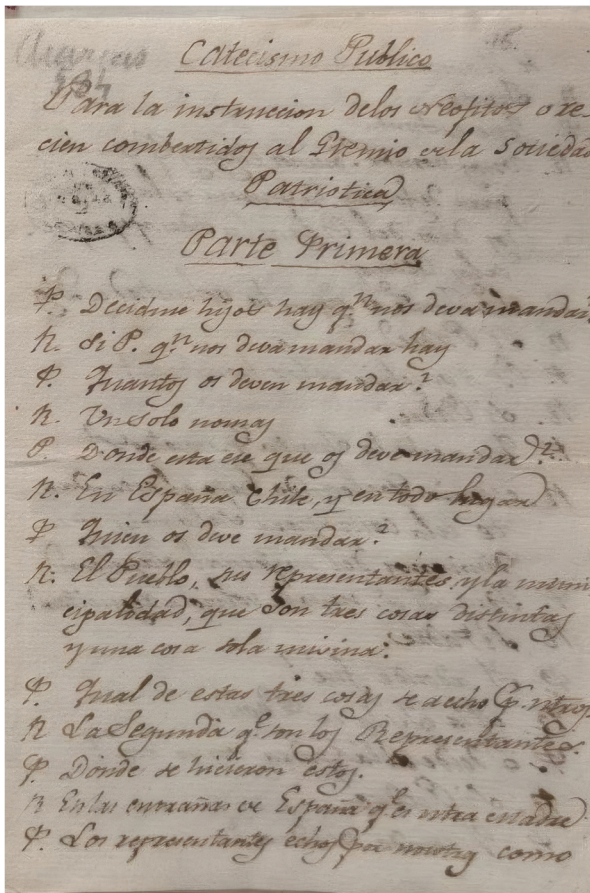 Catecismo Publico
Para la instruccion delos Neofitos o re-
cien combertidos al Gremio dela Sociedad
Patriotica
Parte Primera
P. Decidme hijos hay q.n nos deva mandar?
R. Si P. q.n nos deva mandar hay
P. Quantos os deven mandar?
R. Un solo nomas
P. Donde esta ese que os deve mandar?
R. En España Chile, y en todo lugar
P. Quien os deve mandar?
R. El Pueblo, sus representantes y la muni
cipalidad, que son tres cosas distintas
y una cosa sola misma.
P. Qual de estas tres cosas se a echo p. ntros
R. La Segunda q.e son los Representantes.
P. Donde se hicieron estos.
R. En las entrañas de España q.e es ntra madre
P. Los representantes echos por nosotros como